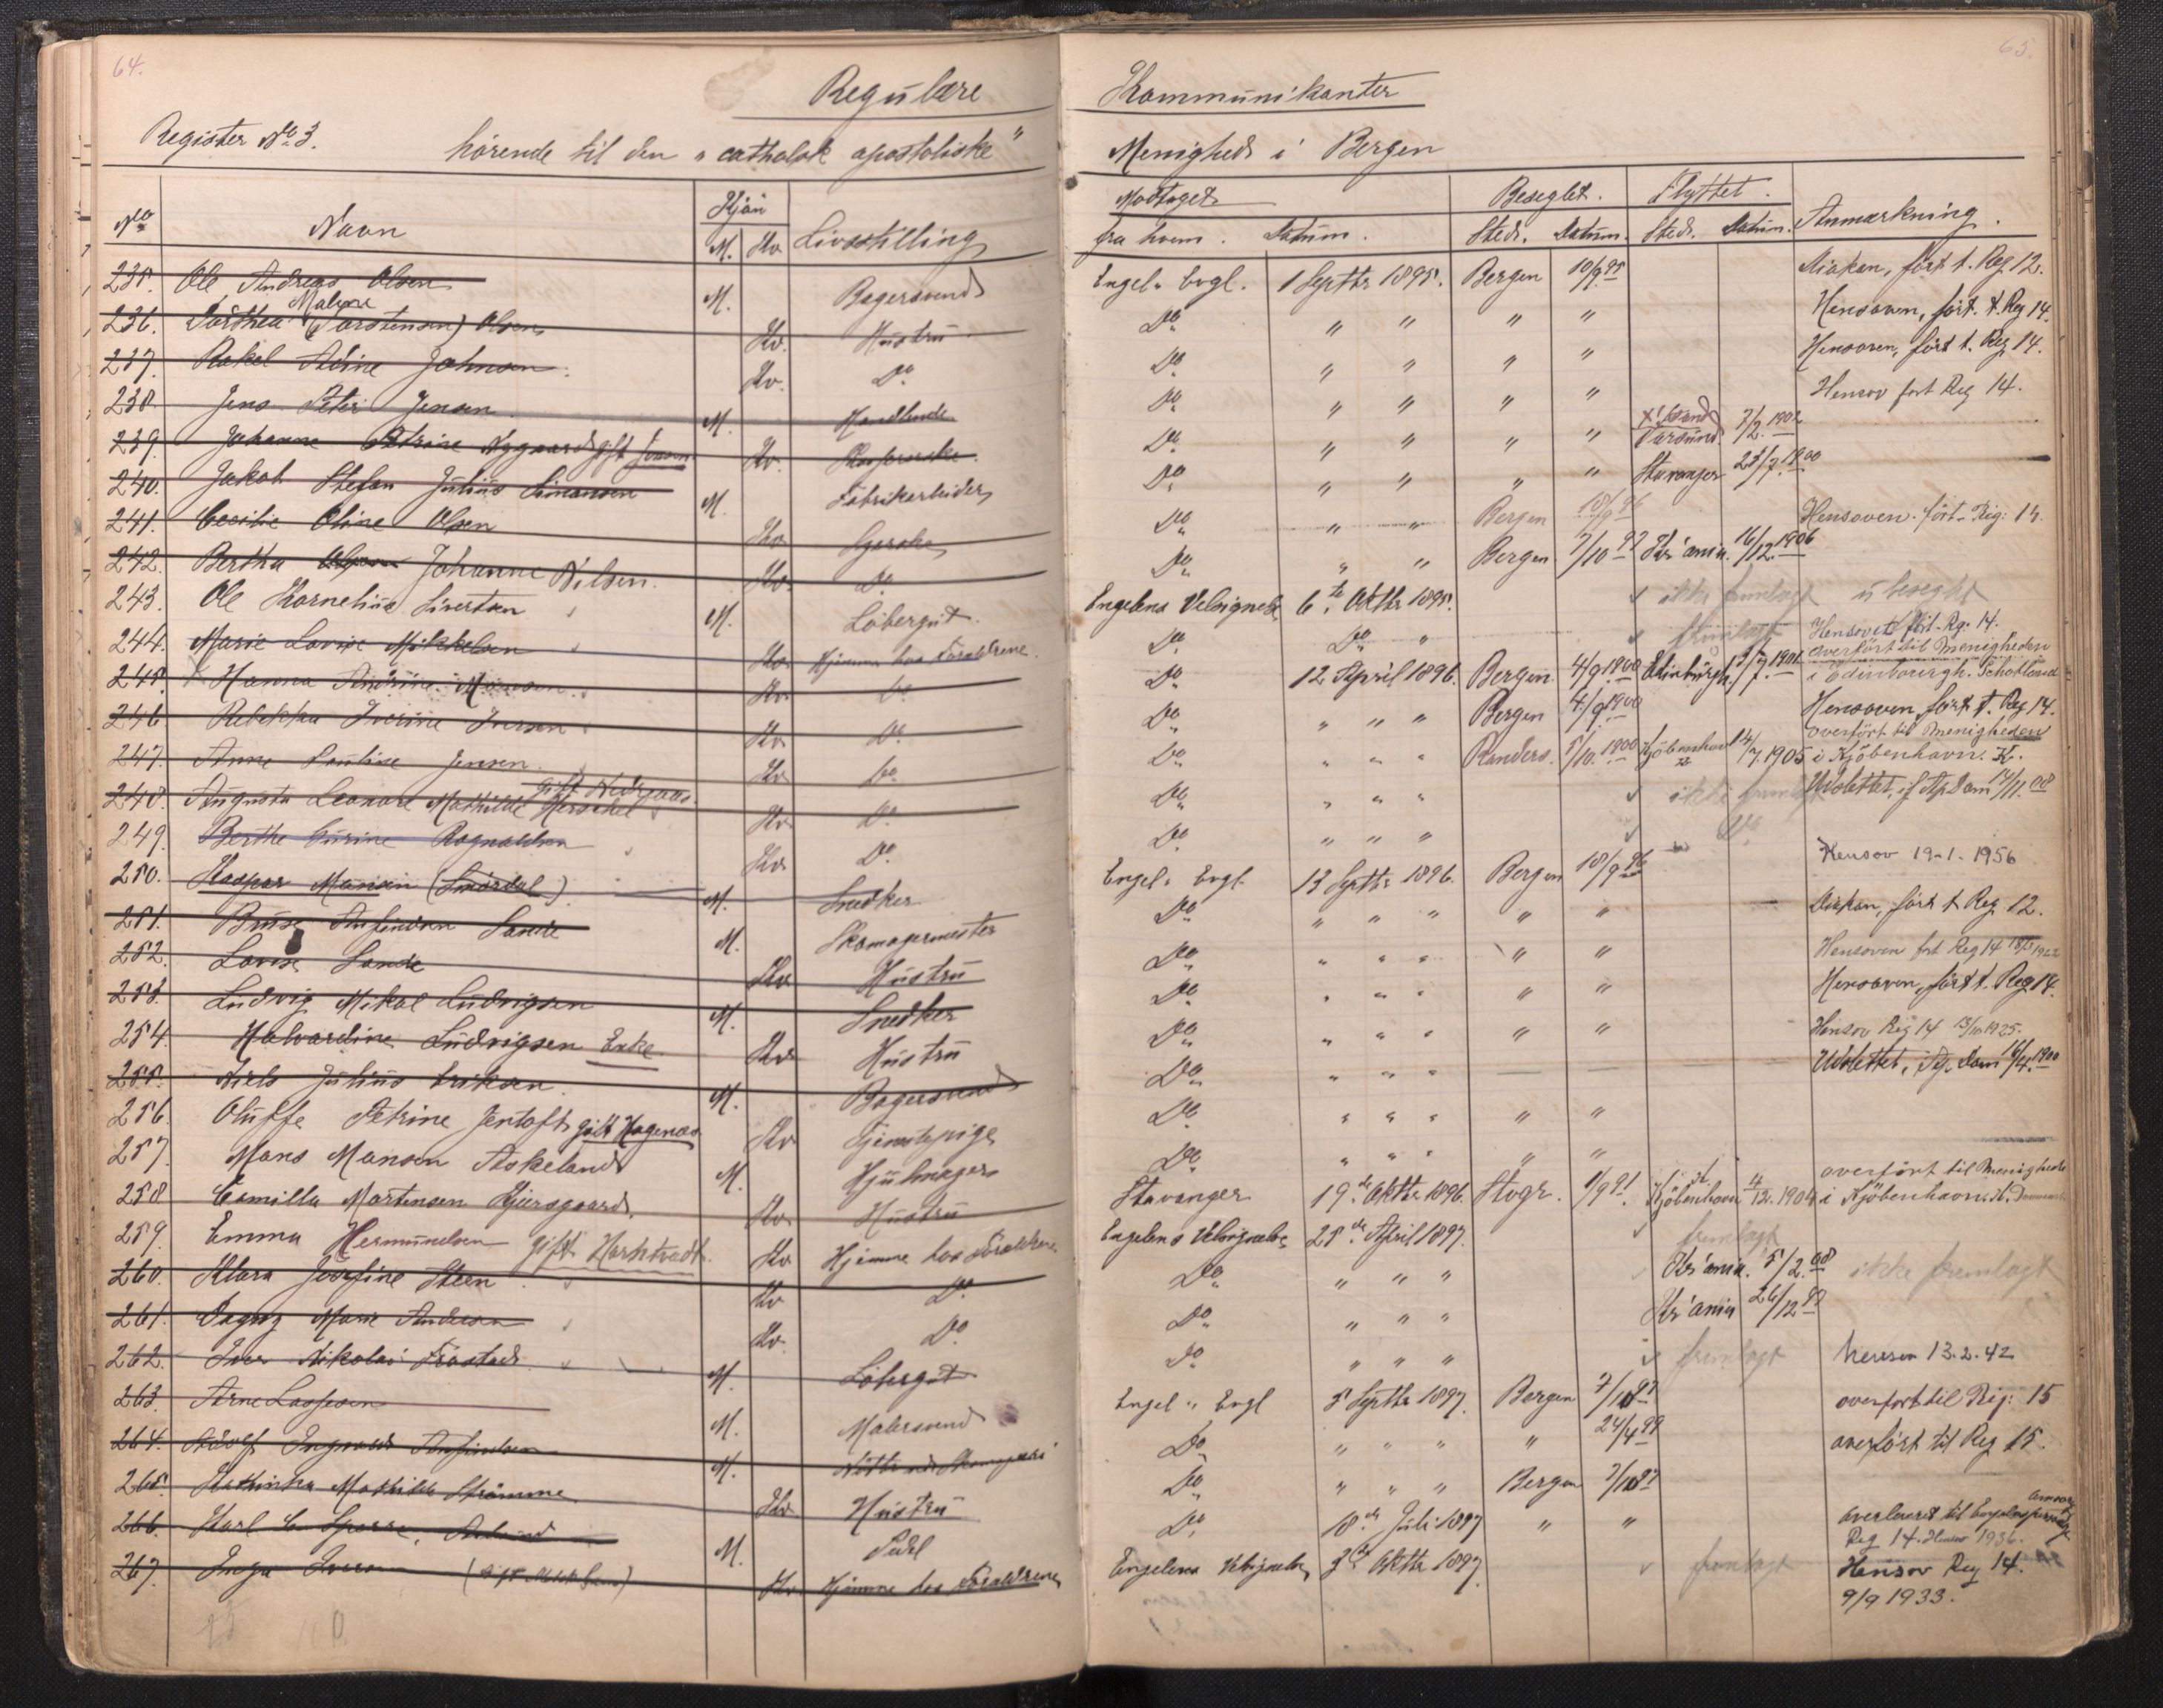 64.
65.
Regulære Kommunikanter
Register No 3. hörende til den "catholsk apostoliske" Menighed i Bergen
No Navn Kjön Livsstilling Modtaget Beseglet. Flyttet. Anmærkning.
M. Kv. fra hvem. Datum. Sted. Datum. Sted. Datum.
235. Ole Andreas Olsen M. Bagersvend Engel " Evgl. 1 Septbr 1895. Bergen 10/9.95 Diakon, fört t. Reg 12.
236. Dorthea Malene (Torstensen) Olsen Kv. Hustru Do " " " " Hensoven, fört. t. Reg 14.
237. Rakel Adine Johnsen. Kv. Do Do " " " " Hensoven, fört t. Reg 14.
238. Jens Peter Jensen M. Handlende Do " " " " Hensov fört Reg 14.
239. Johanne Petrine Nygaard gift Jensen Kv. Do " " " " 7/2.1902
240. Jakob Stefan Julius Simonsen M. Fabrikarbeider Do " " " " Stavanger 23/7.1900
241. Cecilie Oline Olsen Kv. Do " " Bergen 10/9 96 Hensoven. fört. Reg: 14.
242. Bertha Johanne Nilsen. Kv. Do Do " " Bergen 7/10 97 Kr'ania. 16/12.1906
243. Ole Kornelius Sivertsen M. Löbergut. Engelens Velsignelse 6te Oktbr 1895. ikke fremlagt ubeseglet
244. Marie Lovise Mikkelsen Kv. Hjemme hos Forældrene. Do Do " fremlagt Hensovet fört. Rg. 14.
245. Hanna Andrine Monsen Kv. Do Do 12 April 1896. Bergen 4/9 1900 Edinburgh. 1/7.1901 overfört til Menigheden i Edinbourgh. Schotland
246 Rebekka Iverine Iversen Kv. Do Do " " " Bergen 4/9 1900 Hensoven, fört t. Reg 14.
247. Anne Pauline Jensen. Kv. Do Do " " " Randers. 5/10.1900 Kjöbenhavn 14/7.1905 overfört til Menigheden i Kjöbenhavn. K.
248. Augusta Leonore Mathilde Herschel gift Kv. Do Do " " " ikke fremlagt Udslettet, if Ap Dom 14/11.08
249. Berthe Gurine Ragnvaldsen Kv. Do Do " " " " Do Hensov 19-1-1956
250. Kaspar Monsen (Smördal) M. Snedker Engel " Evgl. 13 Septbr 1896. Bergen 10/9 96
251. Anfindsen Sande M. Skomagermester Do " " " " " Diakon, fört t Reg 12.
252. Lovise Sande Kv. Hustru Do " " " " " Hensoven fört Reg 14
253. Ludvig Mikal Ludvigsen M. Snedker Do " " " " " Hensoven, fört t. Reg 14.
254. Halvardine Ludvigsen Enke Kv. Hustru Do " " " " " Hensov Reg 14 13/10 1925.
255. Niels Julius Eriksen M. Bagersvend Do " " " — — Udslettet, if Ap. Dom 16/4.1900
256. Oluffe Petrine Jentoft gift Hagenæs Kv. Tjenestepige Do " " " " "
257. Mons Monsen Askeland M. Hjulmager Do " " " " "
258 Camilla Mortensen Kjersgaard. Kv. Hustru Stavanger 19de Oktbr 1896. Stvgr. 1/9 91 Kjöbenhavn 4/12.1904 overfört til Menigheden i Kjöbenhavn. K. Danmark
259. Emma Hermundsen gift Kv. Hjemme hos Forældrene Engelens Velsignelse 25de April 1897. fremlagt
260. Klara Josefine Steen Kv Do Do " " " Kr'ania. 5/2.08 ikke fremlagt
261. Dagny Marie Andersen Kv. Do Do " " " Kr'ania 26/12 99
262. Iver Nikolai Frostad M. Löbergut Do " " " fremlagt 13.2.42
263. Arne Lassesen M. Malersvend Engel " Evgl 5 Septbr 1897. Bergen 7/10 97 overfört til Reg: 15
264. Adolf Ingvald Anfindsen M. Do " " " " 24/4 99 overfört til Reg 15.
265. Kathinka Mathilde Strömme Kv. Hustru Do " " " Bergen 7/10 97
266. Karl M. Pedel Do 18de Juli 1897 " " overleveret til Reg 14. Hensov 1936.
267. Inga Iversen Kv. Hjemme hos Forældrene Engelens Velsignelse 3die Oktbr 1897. fremlagt Hensov Reg 14. 9/9 1933.